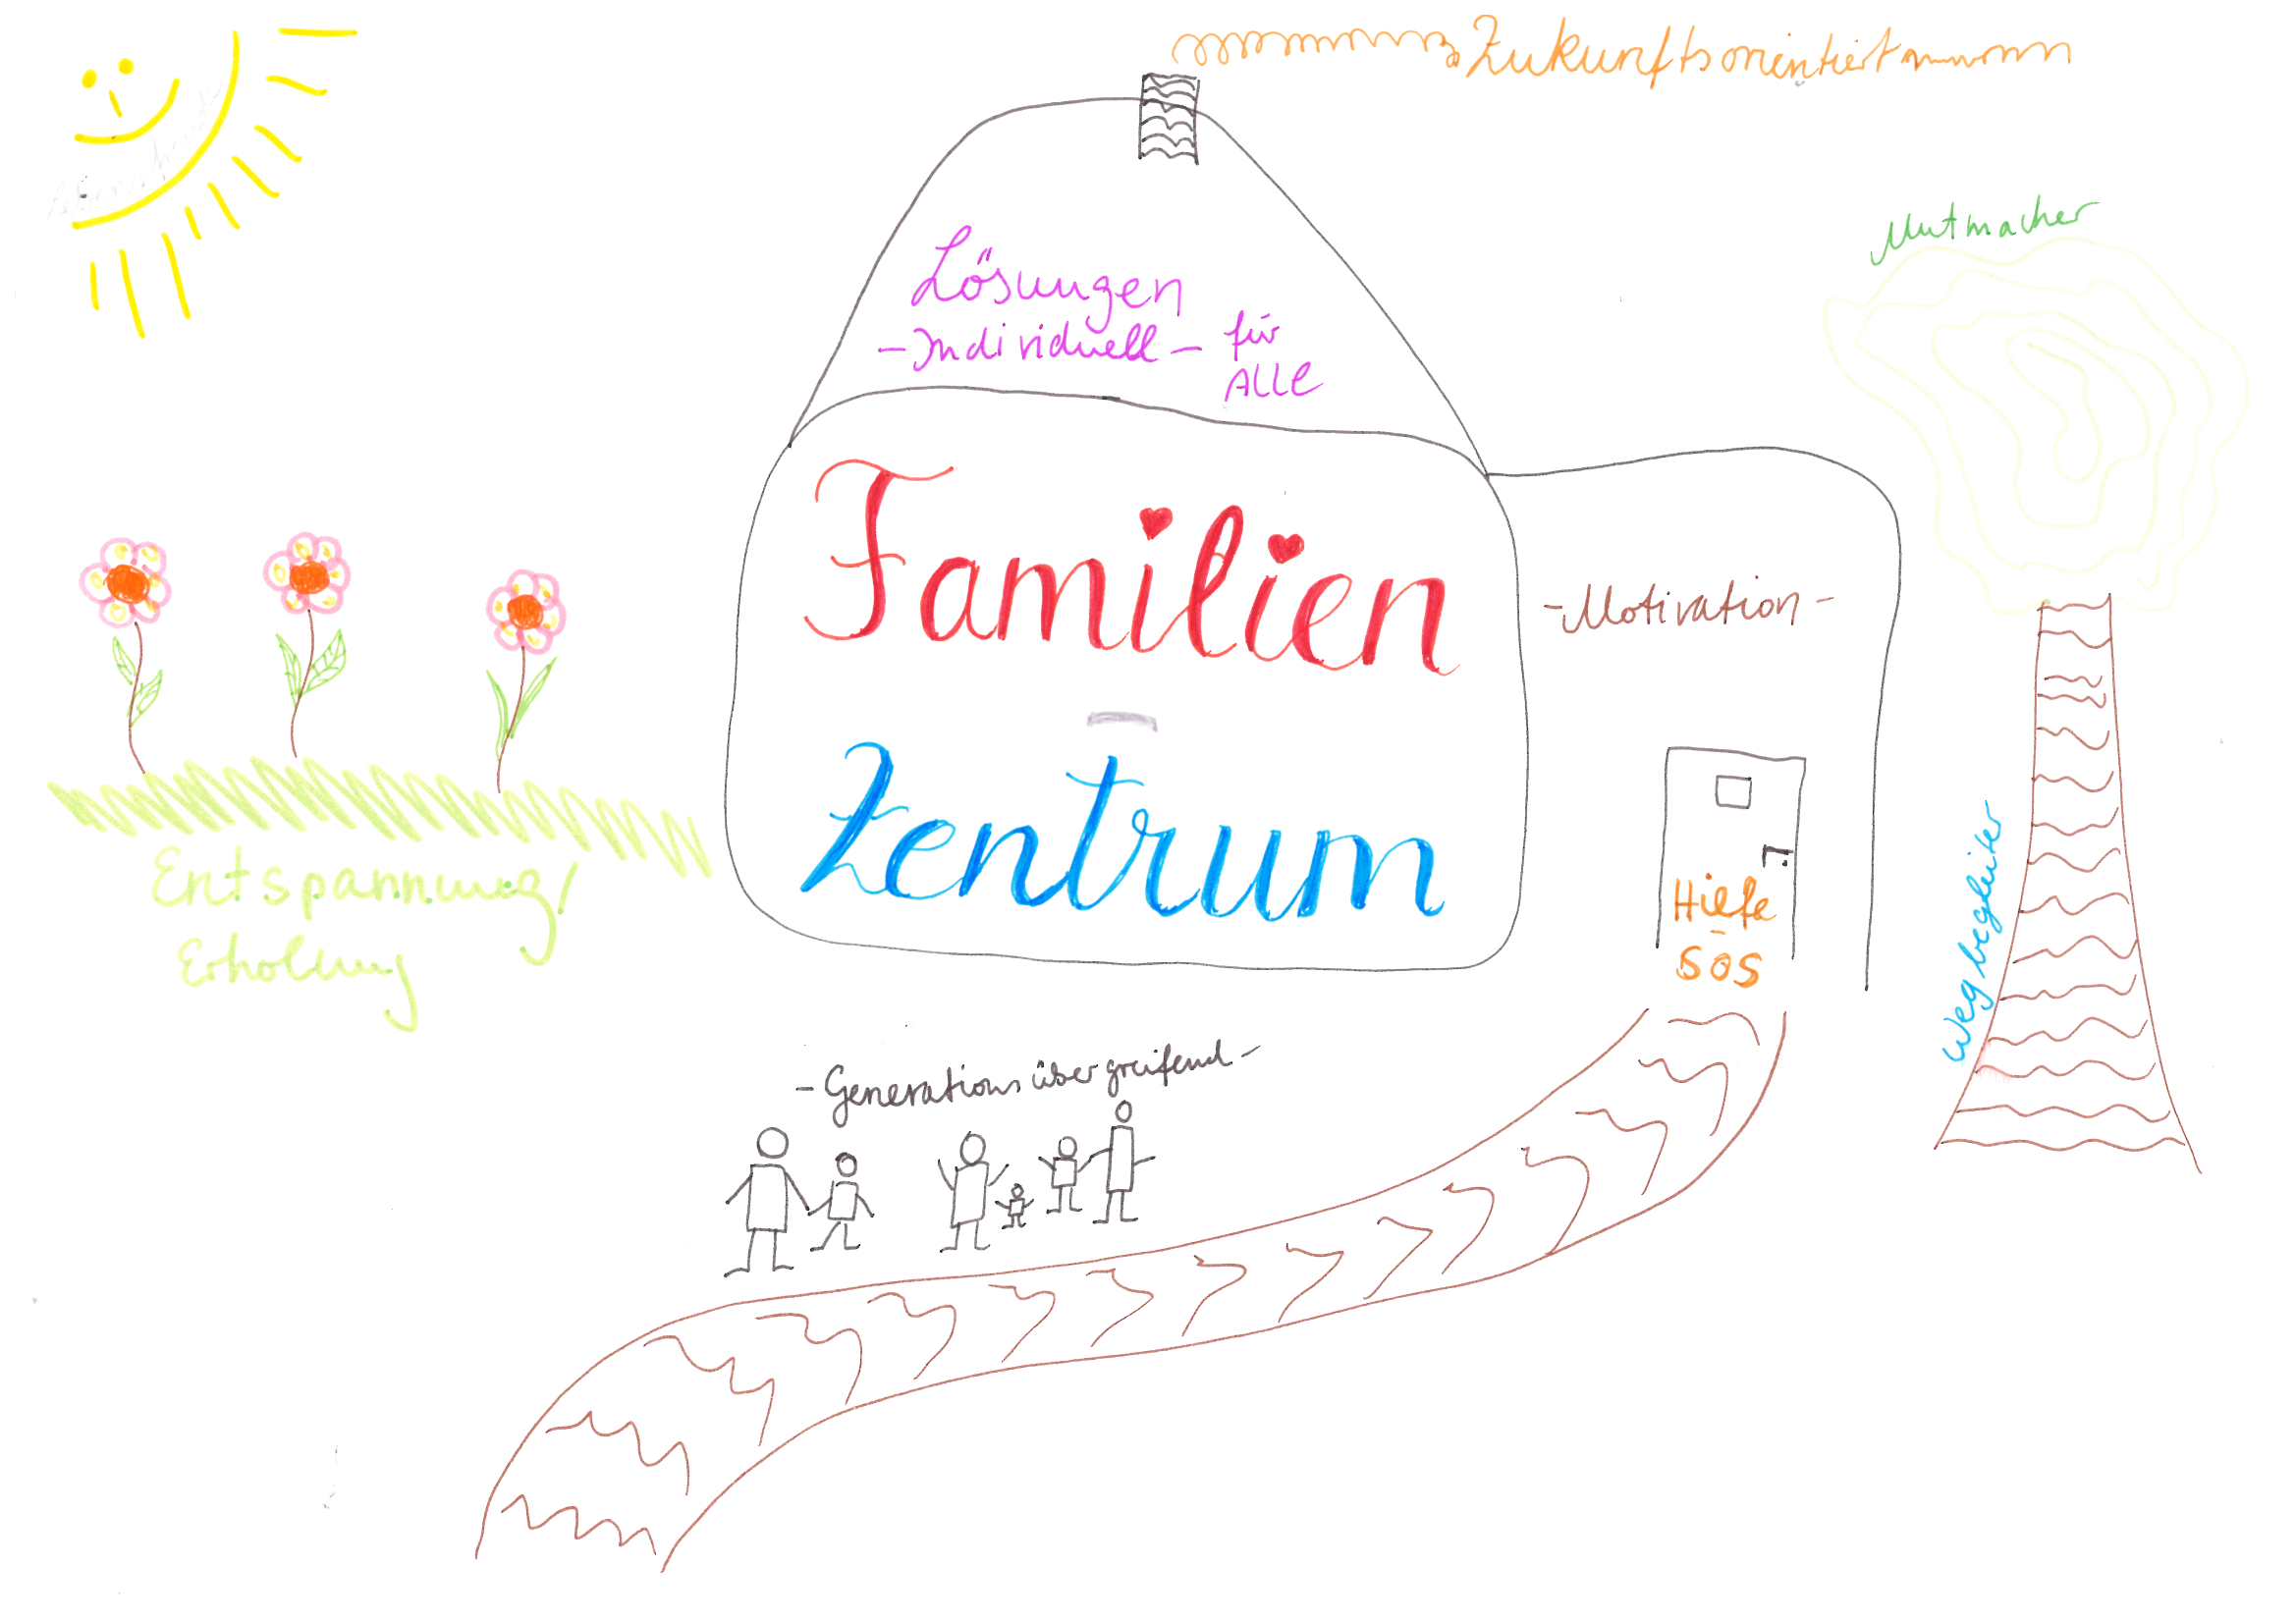 Zukunftsorientiert
Mutmacher
Lösungen
- Individuell - für
ALLE
Familien
-
Zentrum
- Motivation -
Hielfe
-
SOS
Wegbegleiter
Entspannung/
Erholung
- Generationsübergreifend -